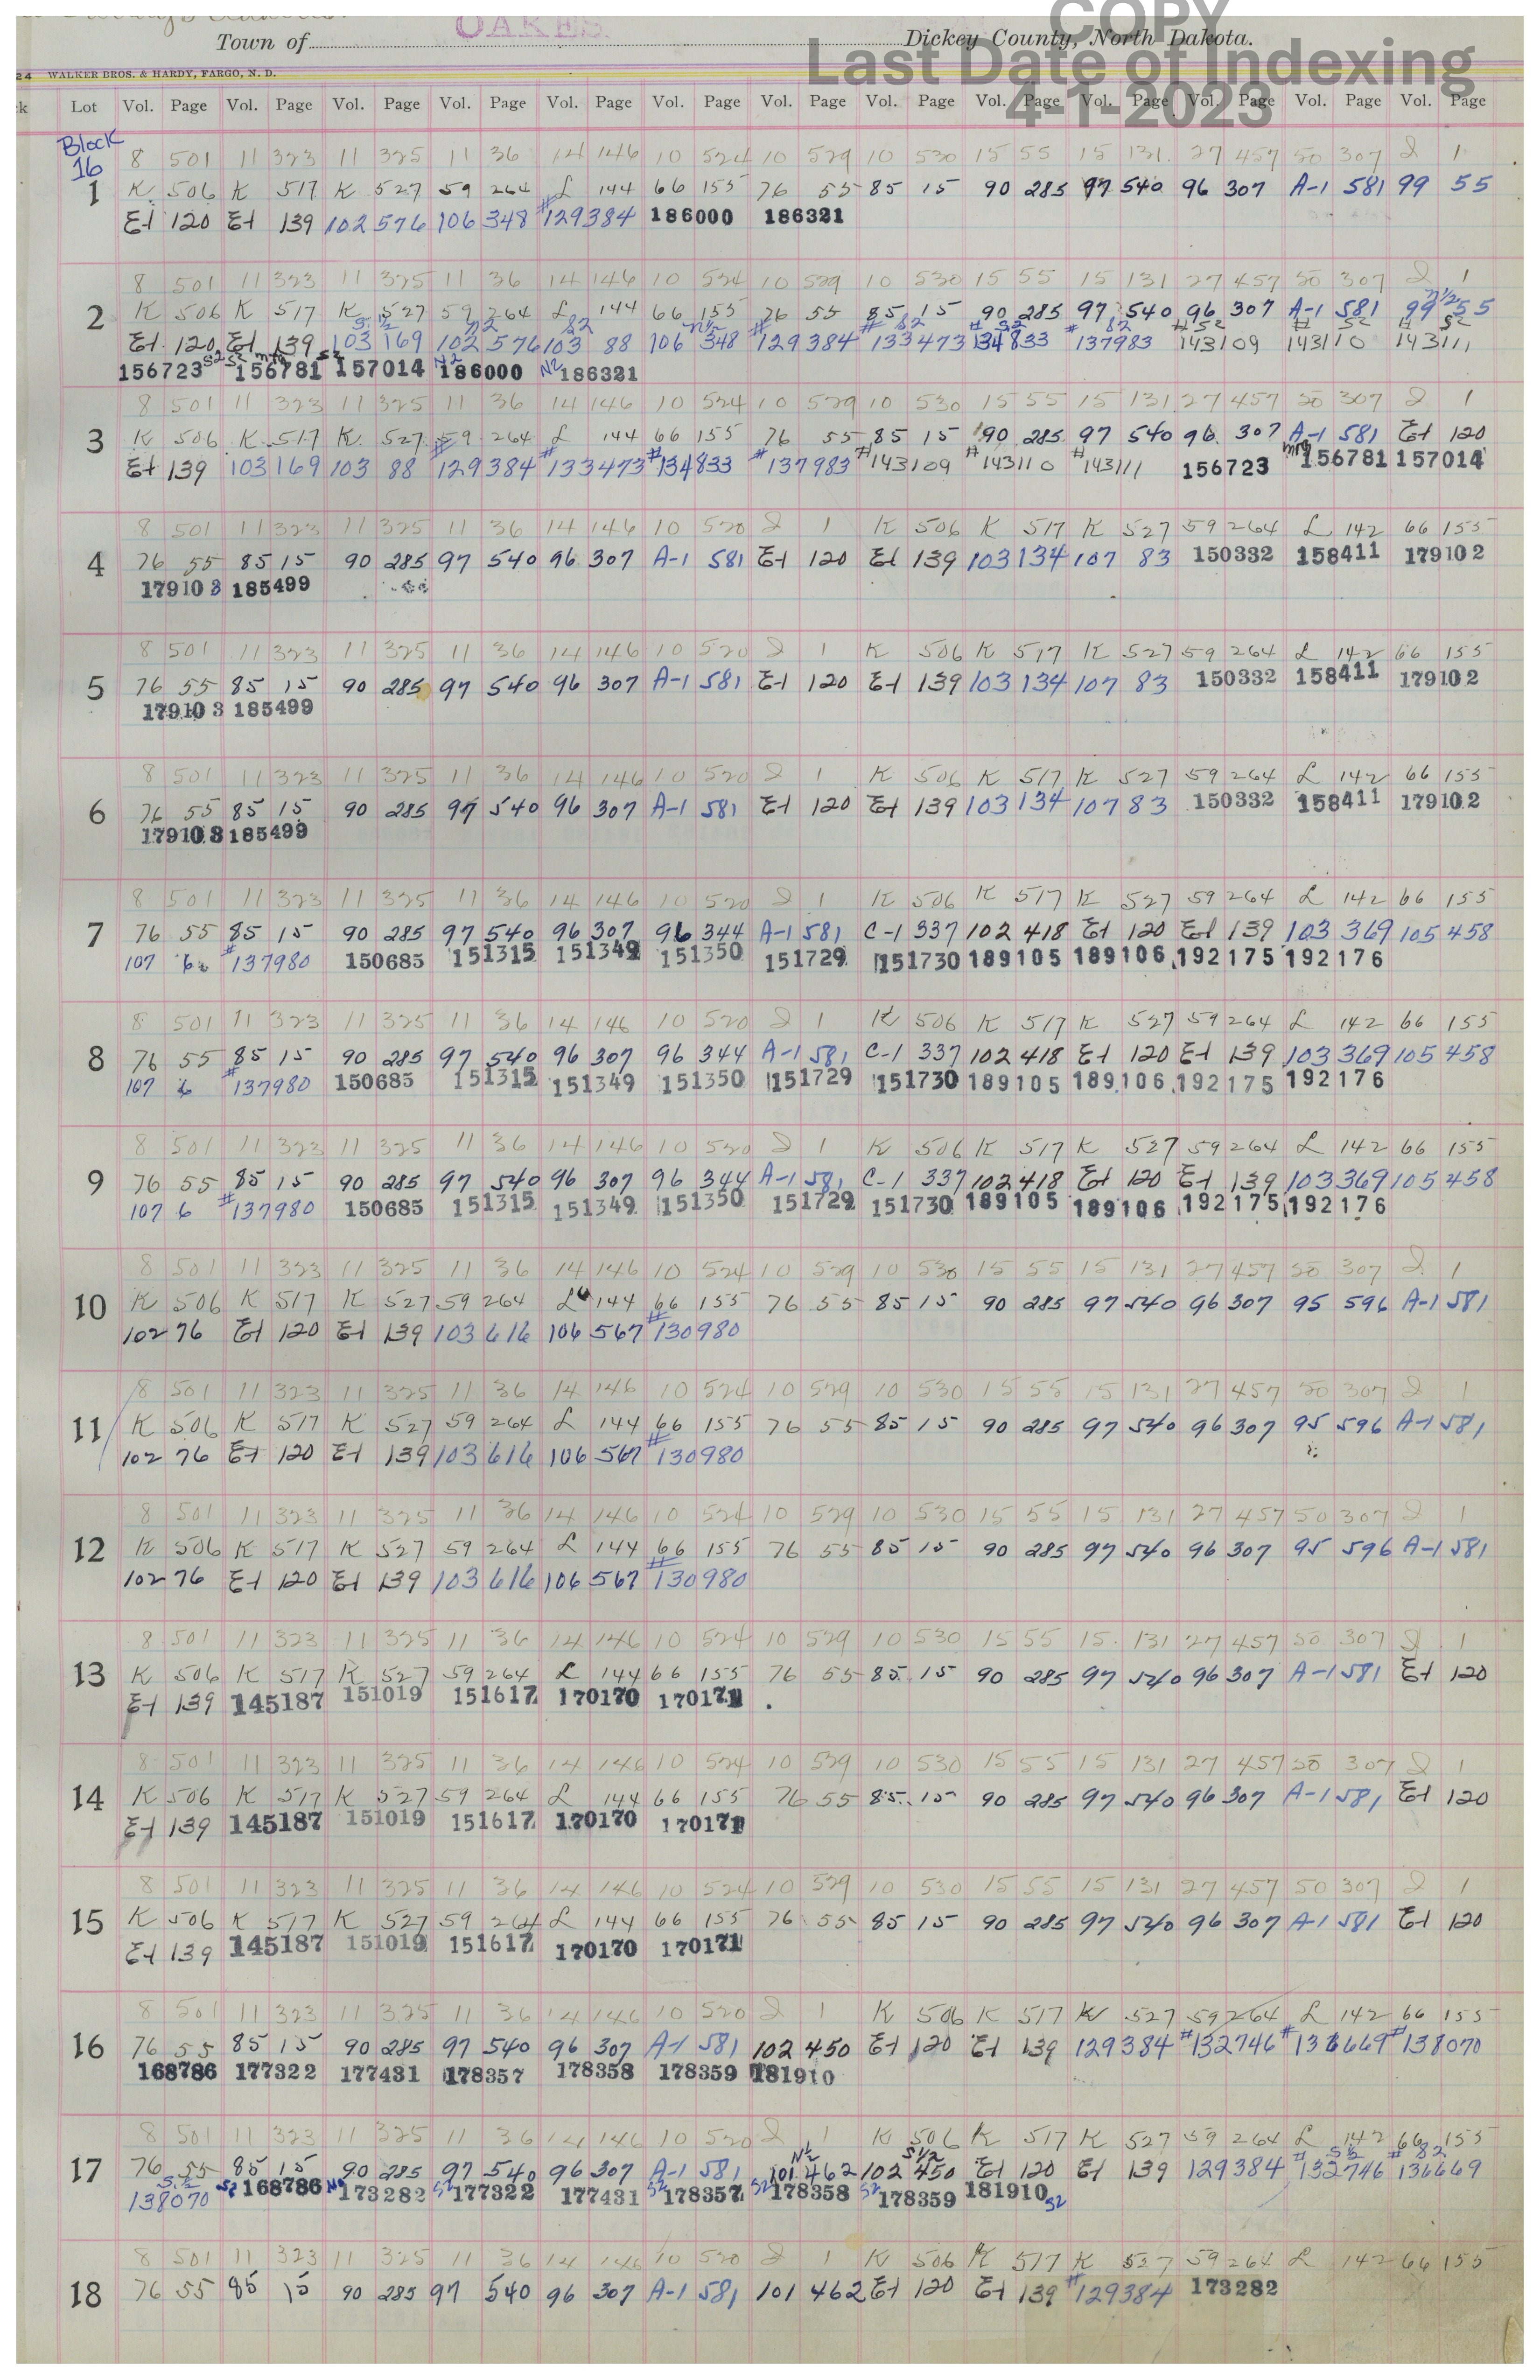 Town of OAKES Dickey County, North Dakota.
COPY
Last Date of Indexing
4-1-2023
24 WALKER BROS. & HARDY, FARGO, N. D.
ck Lot Vol. Page Vol. Page Vol. Page Vol. Page Vol. Page Vol. Page Vol. Page Vol. Page Vol. Page Vol. Page Vol. Page Vol. Page Vol. Page
Block 16
8 501 11 323 11 325 11 36 14 146 10 524 10 529 10 530 15 55 15 131 27 457 50 307 2 1
1 K 506 K 517 K 527 59 264 L 144 66 155 76 55 85 15 90 285 97 540 96 307 A-1 581 99 55
E-1 120 E-1 139 102 576 106 348 #129384 186000 186321
8 501 11 323 11 325 11 36 14 146 10 524 10 529 10 530 15 55 15 131 27 457 50 307 2 1
2 K 506 K 517 K 527 59 264 L 144 66 155 76 55 85 15 90 285 97 540 96 307 A-1 581 99 N1/2 55
E-1 120 E-1 139 S1/2 103 169 N2 102 576 S2 103 88 106 N1/2 348 #129384 #133473 S2 #134833 S2 #137983 S2 #143109 S2 #143110 S2 #143111 S2
156723 S2 S2 156781 mtg 157014 S2 N2 186000 N2 186321
8 501 11 323 11 325 11 36 14 146 10 524 10 529 10 530 15 55 15 131 27 457 50 307 2 1
3 K 506 K 517 K 527 59 264 L 144 66 155 76 55 85 15 90 285 97 540 96 307 A-1 581 E-1 120
E-1 139 103 169 103 88 #129384 #133473 #134833 #137983 #143109 #143110 #143111 156723 mtg 156781 157014
8 501 11 323 11 325 11 36 14 146 10 520 2 1 K 506 K 517 K 527 59 264 L 142 66 155
4 76 55 85 15 90 285 97 540 96 307 A-1 581 E-1 120 E-1 139 103 134 107 83 150332 158411 179102
179103 185499
8 501 11 323 11 325 11 36 14 146 10 520 2 1 K 506 K 517 K 527 59 264 L 142 66 155
5 76 55 85 15 90 285 97 540 96 307 A-1 581 E-1 120 E-1 139 103 134 107 83 150332 158411 179102
179103 185499
8 501 11 323 11 325 11 36 14 146 10 520 2 1 K 506 K 517 K 527 59 264 L 142 66 155
6 76 55 85 15 90 285 97 540 96 307 A-1 581 E-1 120 E-1 139 103 134 107 83 150332 158411 179102
179103 185499
8 501 11 323 11 325 11 36 14 146 10 520 2 1 K 506 K 517 K 527 59 264 L 142 66 155
7 76 55 85 15 90 285 97 540 96 307 96 344 A-1 581 C-1 337 102 418 E-1 120 E-1 139 103 369 105 458
107 6 #137980 150685 151315 151349 151350 151729 151730 189105 189106 192175 192176
8 501 11 323 11 325 11 36 14 146 10 520 2 1 K 506 K 517 K 527 59 264 L 142 66 155
8 76 55 85 15 90 285 97 540 96 307 96 344 A-1 581 C-1 337 102 418 E-1 120 E-1 139 103 369 105 458
107 6 #137980 150685 151315 151349 151350 151729 151730 189105 189106 192175 192176
8 501 11 323 11 325 11 36 14 146 10 520 2 1 K 506 K 517 K 527 59 264 L 142 66 155
9 76 55 85 15 90 285 97 540 96 307 96 344 A-1 581 C-1 337 102 418 E-1 120 E-1 139 103 369 105 458
107 6 #137980 150685 151315 151349 151350 151729 151730 189105 189106 192175 192176
8 501 11 323 11 325 11 36 14 146 10 524 10 529 10 530 15 55 15 131 27 457 50 307 2 1
10 K 506 K 517 K 527 59 264 L 144 66 155 76 55 85 15 90 285 97 540 96 307 95 596 A-1 581
102 76 E-1 120 E-1 139 103 616 106 567 #130980
8 501 11 323 11 325 11 36 14 146 10 524 10 529 10 530 15 55 15 131 27 457 50 307 2 1
11 K 506 K 517 K 527 59 264 L 144 66 155 76 55 85 15 90 285 97 540 96 307 95 596 A-1 581
102 76 E-1 120 E-1 139 103 616 106 567 #130980
8 501 11 323 11 325 11 36 14 146 10 524 10 529 10 530 15 55 15 131 27 457 50 307 2 1
12 K 506 K 517 K 527 59 264 L 144 66 155 76 55 85 15 90 285 97 540 96 307 95 596 A-1 581
102 76 E-1 120 E-1 139 103 616 106 567 #130980
8 501 11 323 11 325 11 36 14 146 10 524 10 529 10 530 15 55 15 131 27 457 50 307 2 1
13 K 506 K 517 K 527 59 264 L 144 66 155 76 55 85 15 90 285 97 540 96 307 A-1 581 E-1 120
E-1 139 145187 151019 151617 170170 170171
8 501 11 323 11 325 11 36 14 146 10 524 10 529 10 530 15 55 15 131 27 457 50 307 2 1
14 K 506 K 517 K 527 59 264 L 144 66 155 76 55 85 15 90 285 97 540 96 307 A-1 581 E-1 120
E-1 139 145187 151019 151617 170170 170171
8 501 11 323 11 325 11 36 14 146 10 524 10 529 10 530 15 55 15 131 27 457 50 307 2 1
15 K 506 K 517 K 527 59 264 L 144 66 155 76 55 85 15 90 285 97 540 96 307 A-1 581 E-1 120
E-1 139 145187 151019 151617 170170 170171
8 501 11 323 11 325 11 36 14 146 10 520 2 1 K 506 K 517 K 527 59 264 L 142 66 155
16 76 55 85 15 90 285 97 540 96 307 A-1 581 102 450 E-1 120 E-1 139 129384 #132746 #136669 #138070
168786 177322 177431 178357 178358 178359 181910
8 501 11 323 11 325 11 36 14 146 10 520 2 1 K 506 K 517 K 527 59 264 L 142 66 155
17 76 55 85 15 90 285 97 540 96 307 A-1 581 101 N1/2 462 102 S1/2 450 E-1 120 E-1 139 129384 #132746 S1/2 #136669 S2
138070 S1/2 S2 168786 N2 173282 S2 177322 177431 S2 178357 S2 178358 S2 178359 181910 S2
8 501 11 323 11 325 11 36 14 146 10 520 2 1 K 506 K 517 K 527 59 264 L 142 66 155
18 76 55 85 15 90 285 97 540 96 307 A-1 581 101 462 E-1 120 E-1 139 #129384 173282